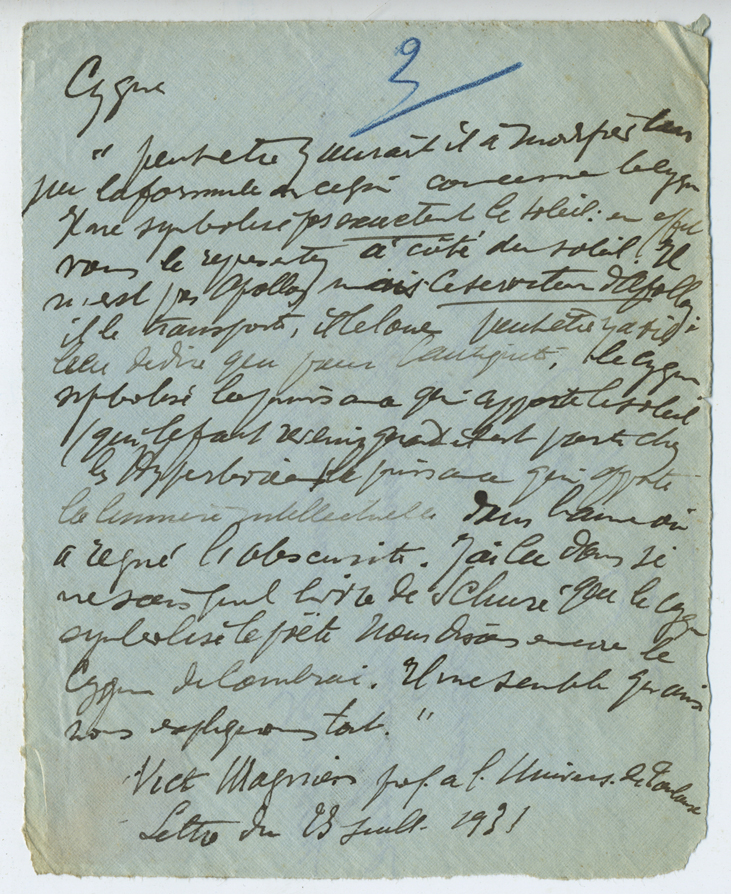 Cygne
2
" peut-etre y aurait il à modifier un
peu la formule en ce qui concerne le cygne
Il ne symbolise pas exactent le soleil : en effet
vous le representez à côté du soleil. Il
n'est pas Apollon mais le serviteur d'Apollon
il le transporte, il le loue peut etre y a t il
lieu de dire que pour l'antiquité, le cygne
symbolise la puissance qui apporte le soleil
(qui le fait revenir quand il est parti chez
les Hyperboréens la puissance qui apporte
la lumière intellectuelle dans l'ame où
a regné l'obscurité. J'ai lu dans je
ne sais quel livre de Schuré que le cygne
symbolise le poète Nous disons encore le
Cygne de Cambrai. Il me semble qu'ainsi
nous expliquons tout. "
Vict Magnien prof. a l. Univers. de Toulouse
Lettre du 23 juill. 1931